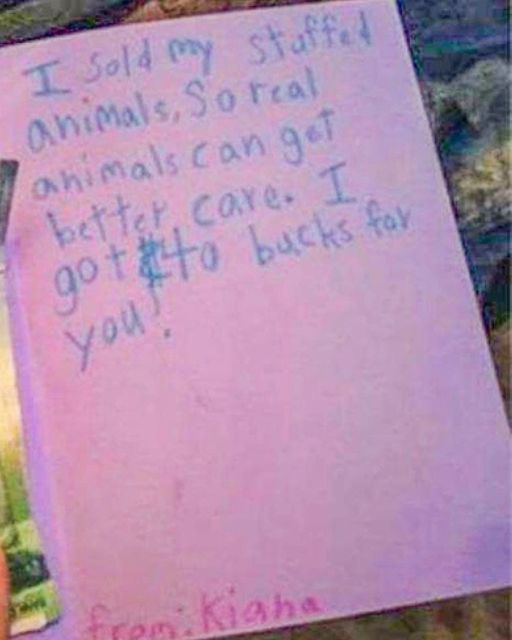 I sold my stuffed
animals, So real
animals can get
better care. I
got $40 bucks for
you!
from: Kiana